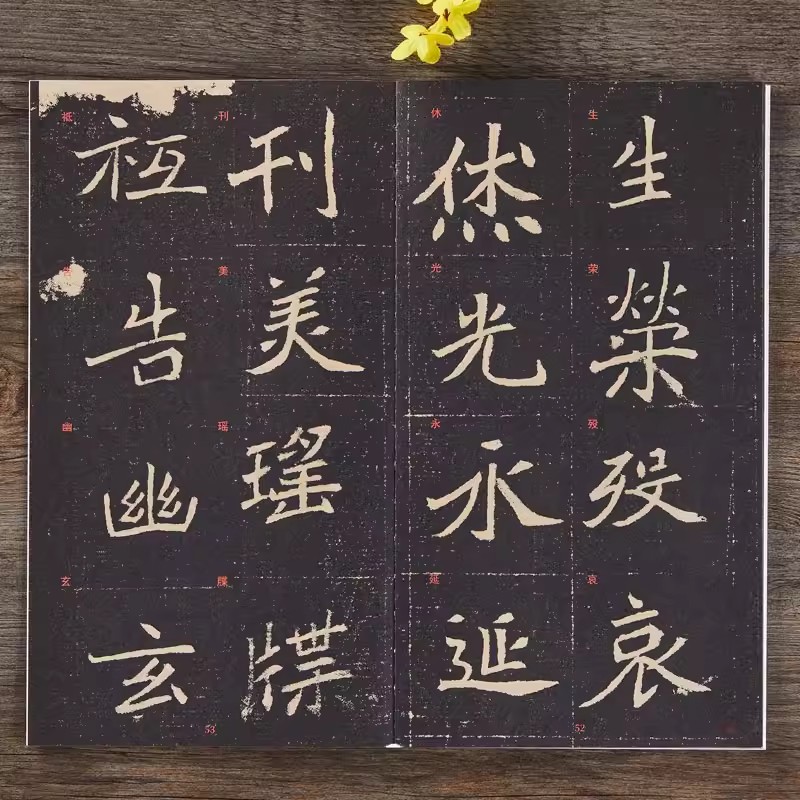 生榮歿哀
生荣殁哀
52
烋光永延
休光永延
刊美瑤牒
刊美瑶牒
祗告幽玄
幽玄
53